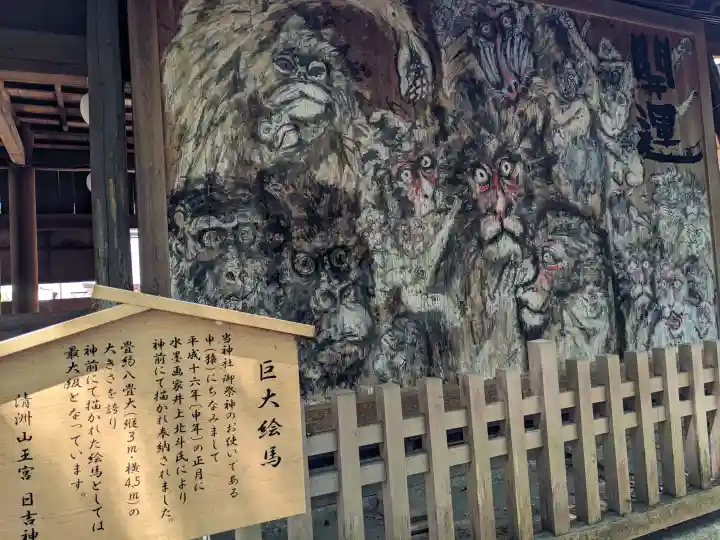 開運
巨大絵馬
当神社御祭神のお使いである
申(猿)にちなみまして
平成十六年(申年)の正月に
水墨画家井上北斗氏により
神前にて描かれ奉納されました。
畳約八畳大(縦3m・横4.5m)の
大きさを誇り
神前にて描かれた絵馬としては
最大級となっています。
清洲山王宮 日吉神